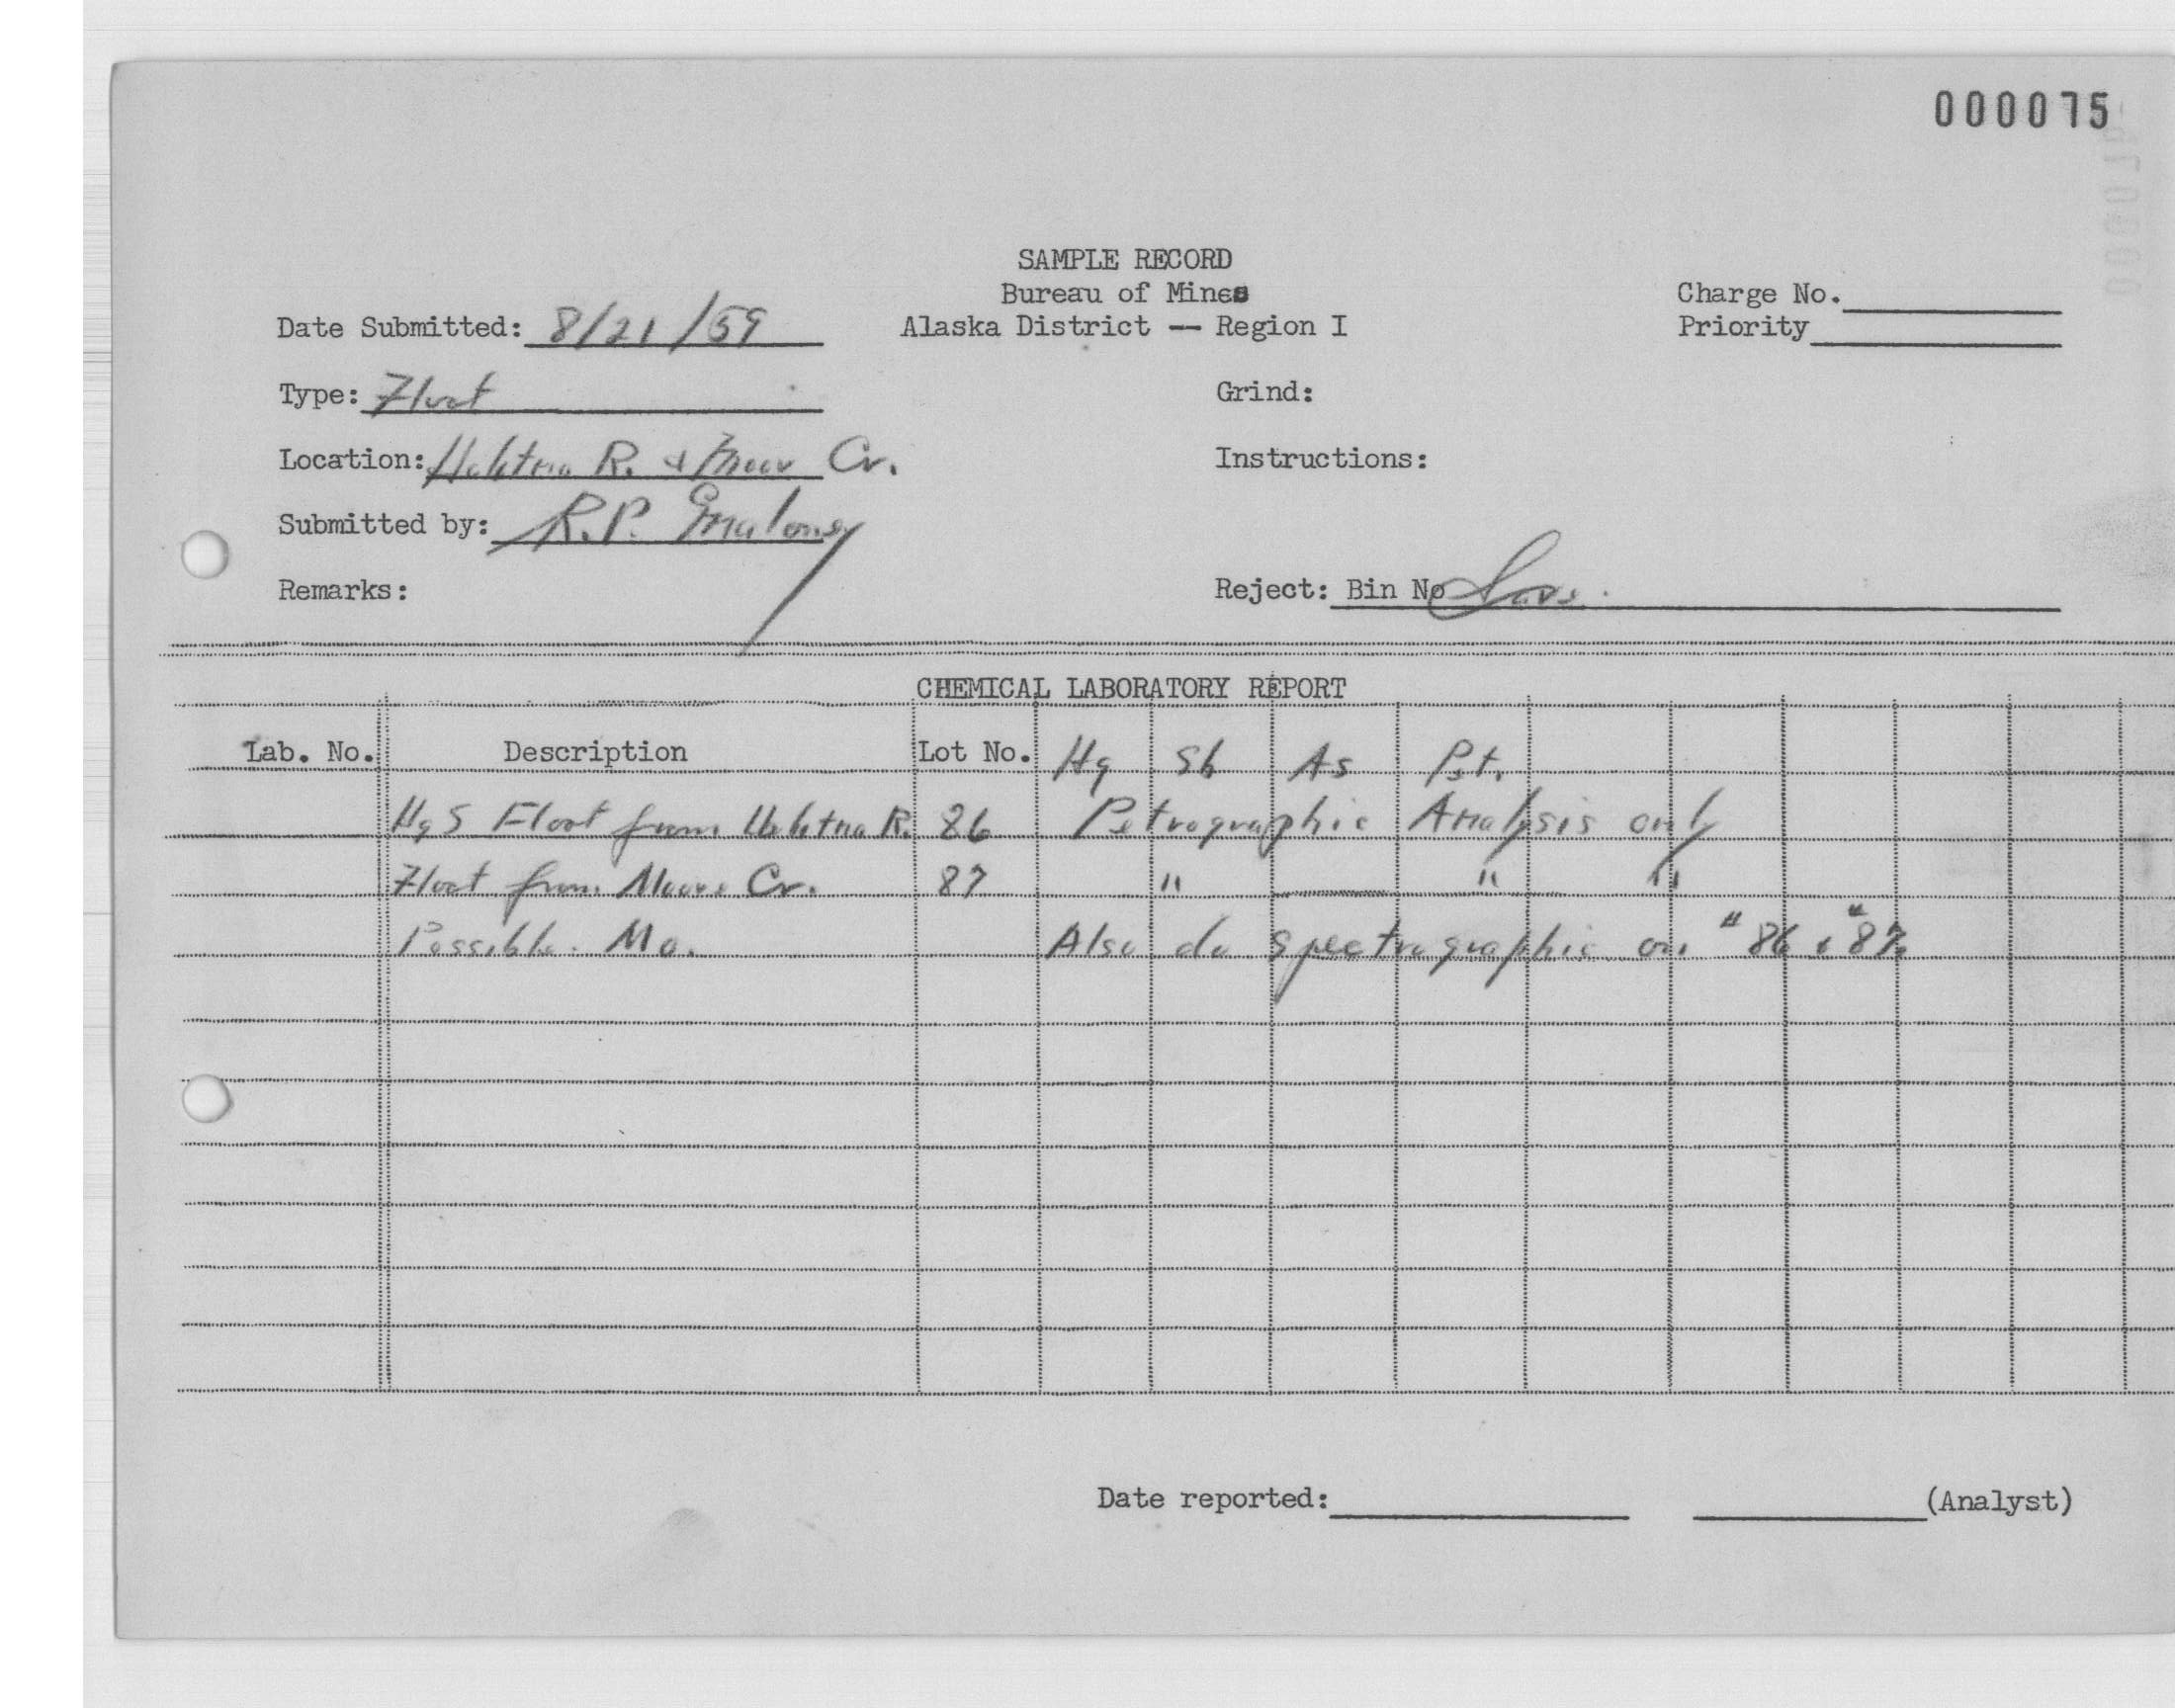 000075
SAMPLE RECORD
Bureau of Mines
Alaska District -- Region I
Charge No.
Priority
Date Submitted: 8/21/59
Type: Float
Grind:
Location: Holitna R. & Moore Cr.
Instructions:
Submitted by: R.P. Maloney
Remarks:
Reject: Bin No Save.
CHEMICAL LABORATORY REPORT
Lab. No. Description Lot No. Hg Sb As Pet.
HgS Float from Holitna R. 86 Petrographic Analysis only
Float from Moore Cr. 87 " " "
Possible Mo. Also do spectrographic on #86 & #87
Date reported: (Analyst)